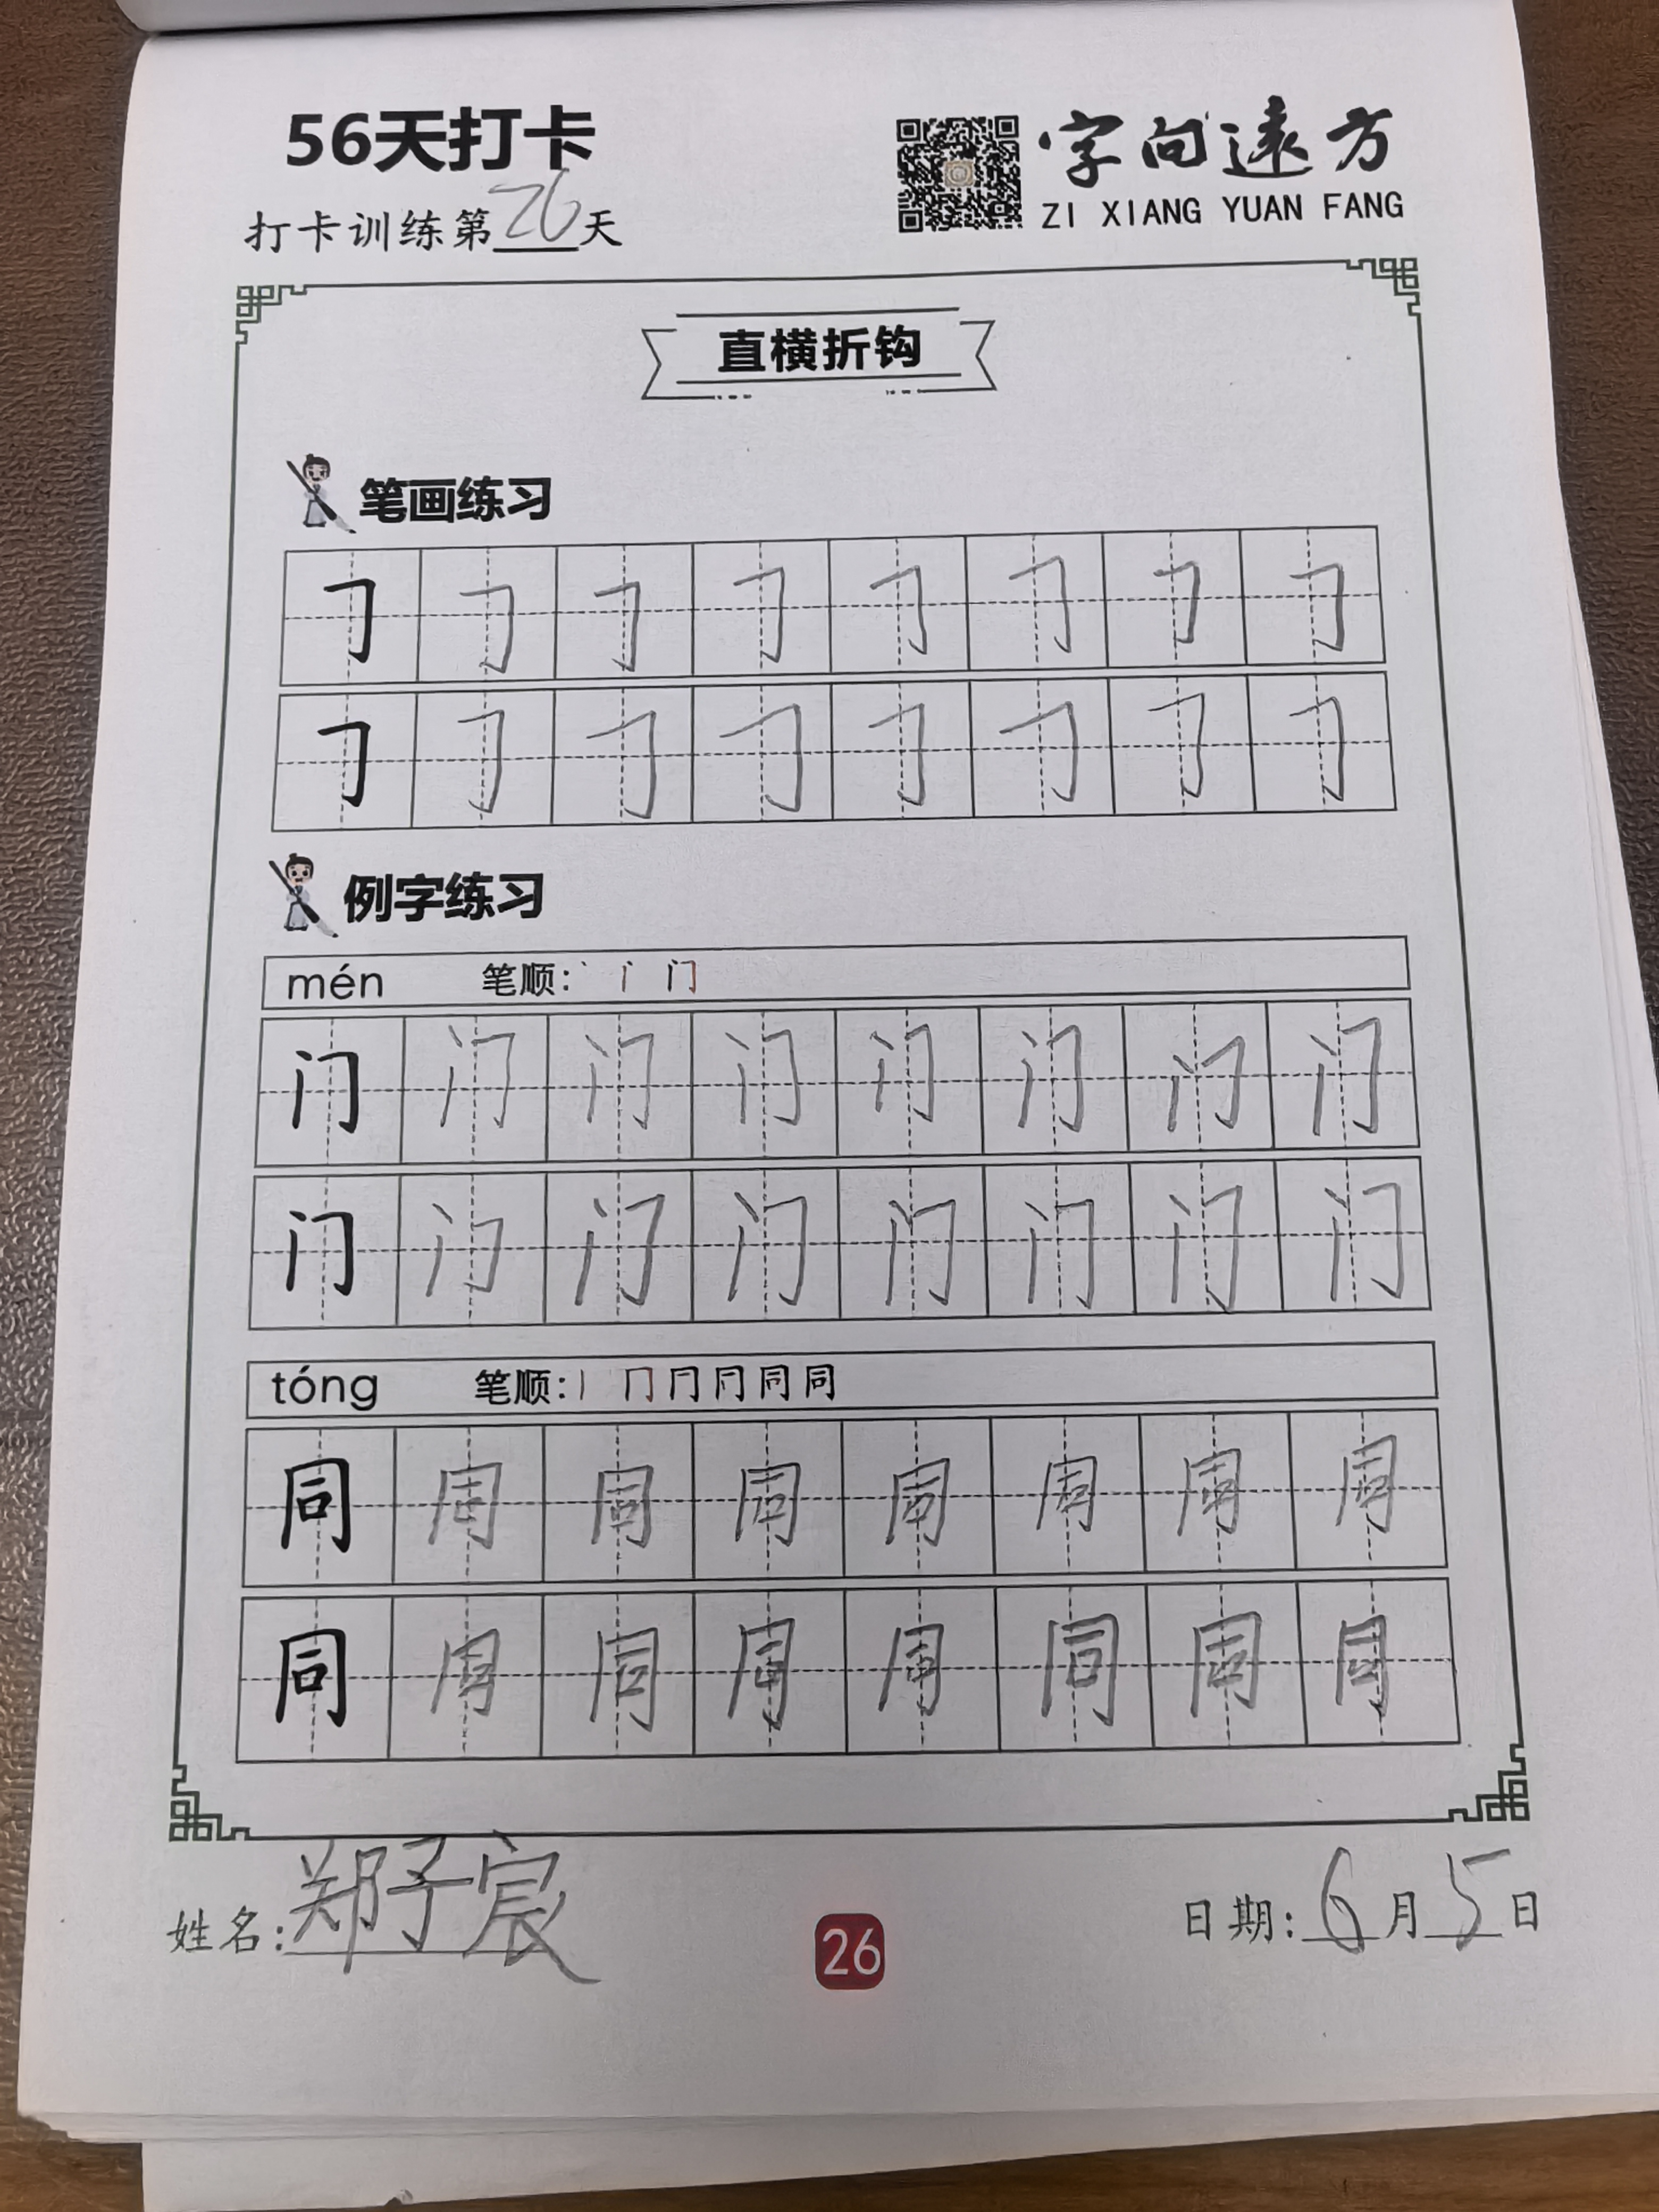 56天打卡
打卡训练第26天
字向远方
ZI XIANG YUAN FANG
直横折钩
笔画练习
𠃌 𠃌 𠃌 𠃌 𠃌 𠃌 𠃌 𠃌
𠃌 𠃌 𠃌 𠃌 𠃌 𠃌 𠃌 𠃌
例字练习
mén 笔顺: 丶 门
门 门 门 门 门 门 门 门
门 门 门 门 门 门 门 门
tóng 笔顺: 丨 冂 同 同
同 周 同 同 同 周 周 周
同 周 同 周 周 同 周 同
姓名: 郑子宸
26
日期: 6月5日